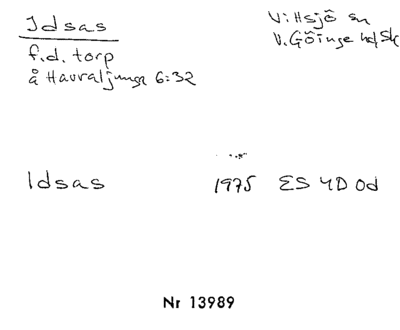 Idsas
Vittsjö sn
V. Göinge hd Sk
f.d. torp
å Havraljunga 6:32
Idsas 1975 ES 4D 0d
Nr 13989